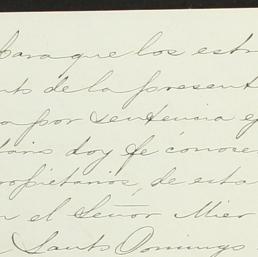 Para que los estr
nto de la present
a por sentencia ej
tario doy fé conoce
ropietarios, de esta
n el Señor Mier
Santo Domingo